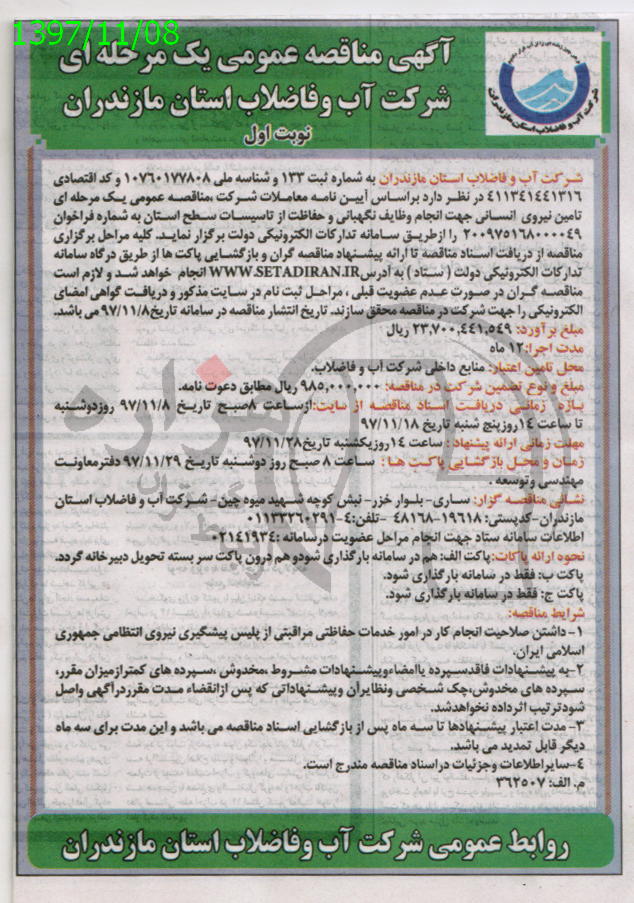 1397/11/08
آگهی مناقصه عمومی یک مرحله ای
شرکت آب وفاضلاب استان مازندران
نوبت اول
شرکت آب و فاضلاب استان مازندران
شرکت آب و فاضلاب استان مازندران به شماره ثبت ۱۳۳ و شناسه ملی ۱۰۷۶۰۱۷۷۸۰۸ و کد اقتصادی
۴۱۱۳۴۱۴۴۱۳۱۶ در نظر دارد براساس آیین نامه معاملات شرکت ،مناقصه عمومی یک مرحله ای
تامین نیروی انسانی جهت انجام وظایف نگهبانی و حفاظت از تاسیسات سطح استان به شماره فراخوان
۲۰۰۹۷۵۱۶۸۰۰۰۰۴۹ را ازطریق سامانه تدارکات الکترونیکی دولت برگزار نماید. کلیه مراحل برگزاری
مناقصه از دریافت اسناد مناقصه تا ارائه پیشنهاد مناقصه گران و بازگشایی پاکت ها از طریق درگاه سامانه
تدارکات الکترونیکی دولت ( ستاد ) به آدرس WWW.SETADIRAN.IR انجام خواهد شد و لازم است
مناقصه گران در صورت عدم عضویت قبلی ، مراحل ثبت نام در سایت مذکور و دریافت گواهی امضای
الکترونیکی را جهت شرکت در مناقصه محقق سازند. تاریخ انتشار مناقصه در سامانه تاریخ ۹۷/۱۱/۸ می باشد.
مبلغ برآورد: ۲۳,۷۰۰,۴۴۱,۵۴۹ ریال
مدت اجرا: ۱۲ ماه
محل تامین اعتبار: منابع داخلی شرکت آب و فاضلاب.
مبلغ و نوع تضمین شرکت در مناقصه: ۹۸۵,۰۰۰,۰۰۰ ریال مطابق دعوت نامه.
بازه زمانی دریافت اسناد مناقصه از سایت: ازساعت ۸صبح تاریخ ۹۷/۱۱/۸ روزدوشنبه
تا ساعت ۱۴روزپنج شنبه تاریخ ۹۷/۱۱/۱۸
مهلت زمانی ارائه پیشنهاد : ساعت ۱۴روزیکشنبه تاریخ ۹۷/۱۱/۲۸
زمان و محل بازگشایی پاکت ها : ساعت ۸ صبح روز دوشنبه تاریخ ۹۷/۱۱/۲۹ دفترمعاونت
مهندسی وتوسعه .
نشانی مناقصه گزار: ساری- بلوار خزر- نبش کوچه شهید میوه چین- شرکت آب و فاضلاب استان
مازندران-کدپستی: ۱۹۶۱۸-۴۸۱۶۸ -تلفن:۴-۰۱۱۳۳۲۶۰۲۹۱
اطلاعات سامانه ستاد جهت انجام مراحل عضویت درسامانه :۰۲۱۴۱۹۳۴
نحوه ارائه پاکات: پاکت الف: هم در سامانه بارگذاری شودو هم درون پاکت سر بسته تحویل دبیرخانه گردد.
پاکت ب: فقط در سامانه بارگذاری شود.
پاکت ج: فقط در سامانه بارگذاری شود.
شرایط مناقصه:
۱- داشتن صلاحیت انجام کار در امور خدمات حفاظتی مراقبتی از پلیس پیشگیری نیروی انتظامی جمهوری
اسلامی ایران.
۲-به پیشنهادات فاقدسپرده یاامضاءوپیشنهادات مشروط ،مخدوش ،سپرده های کمترازمیزان مقرر،
سپرده های مخدوش،چک شخصی ونظایرآن وپیشنهاداتی که پس ازانقضاء مدت مقرردرآگهی واصل
شودترتیب اثرداده نخواهدشد.
۳- مدت اعتبار پیشنهادها تا سه ماه پس از بازگشایی اسناد مناقصه می باشد و این مدت برای سه ماه
دیگر قابل تمدید می باشد.
۴-سایراطلاعات وجزئیات دراسناد مناقصه مندرج است.
م. الف: ۳۶۲۵۰۷
روابط عمومی شرکت آب وفاضلاب استان مازندران